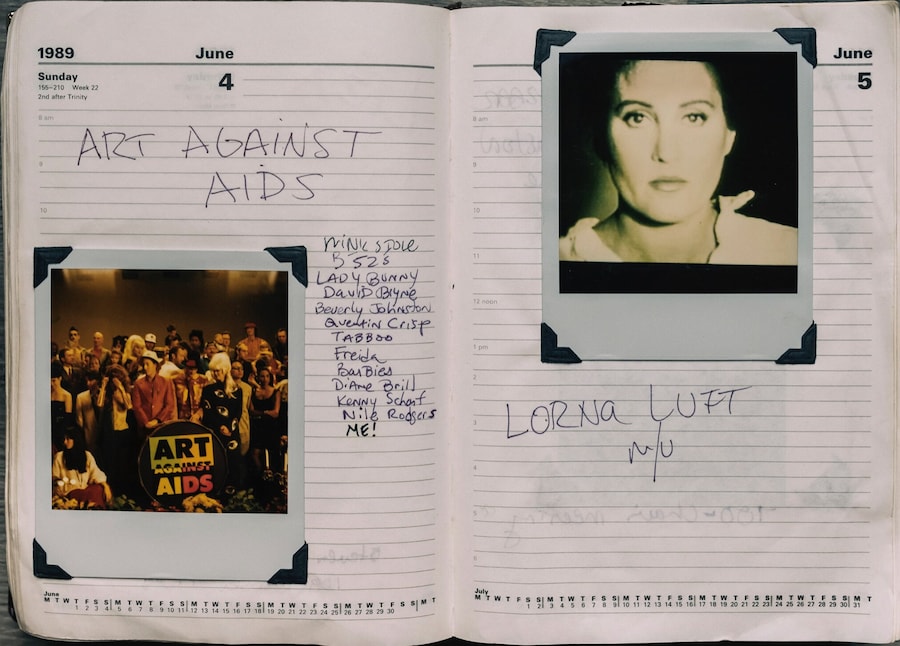 1989 June
Sunday 4
155–210 Week 22
2nd after Trinity
8 am
ART AGAINST
9
AIDS
10
MINK STOLE
B 52s
LADY BUNNY
DAVID Byrne
Beverly Johnston
Quentin Crisp
TABBOO
Freida
BarBies
DiAne Brill
Kenny Scharf
Nile Rodgers
ME!
ART
AGAINST
AIDS
June
M T W T F S S M T W T F S S M T W T F S S M T W T F S S M T W T F S S M T
1 2 3 4 5 6 7 8 9 10 11 12 13 14 15 16 17 18 19 20 21 22 23 24 25 26 27 28 29 30
June
5
8 am
9
10
11
12 noon
1 pm
2
LORNA LUFT
3
M/U
4
5
6
July
M T W T F S S M T W T F S S M T W T F S S M T W T F S S M T W T F S S M T
1 2 3 4 5 6 7 8 9 10 11 12 13 14 15 16 17 18 19 20 21 22 23 24 25 26 27 28 29 30 31